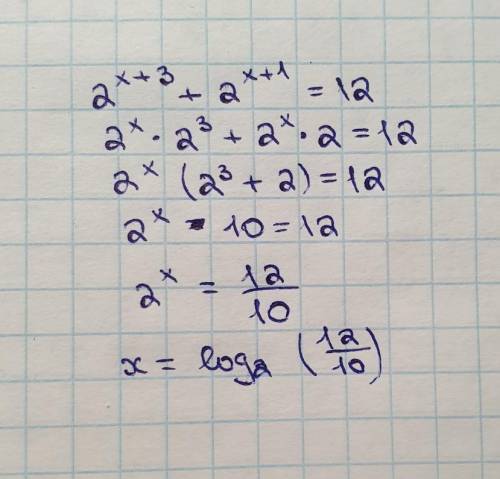 2^{x+3} + 2^{x+1} = 12
2^x · 2^3 + 2^x · 2 = 12
2^x (2^3 + 2) = 12
2^x · 10 = 12
2^x = \frac{12}{10}
x = log_2 (\frac{12}{10})